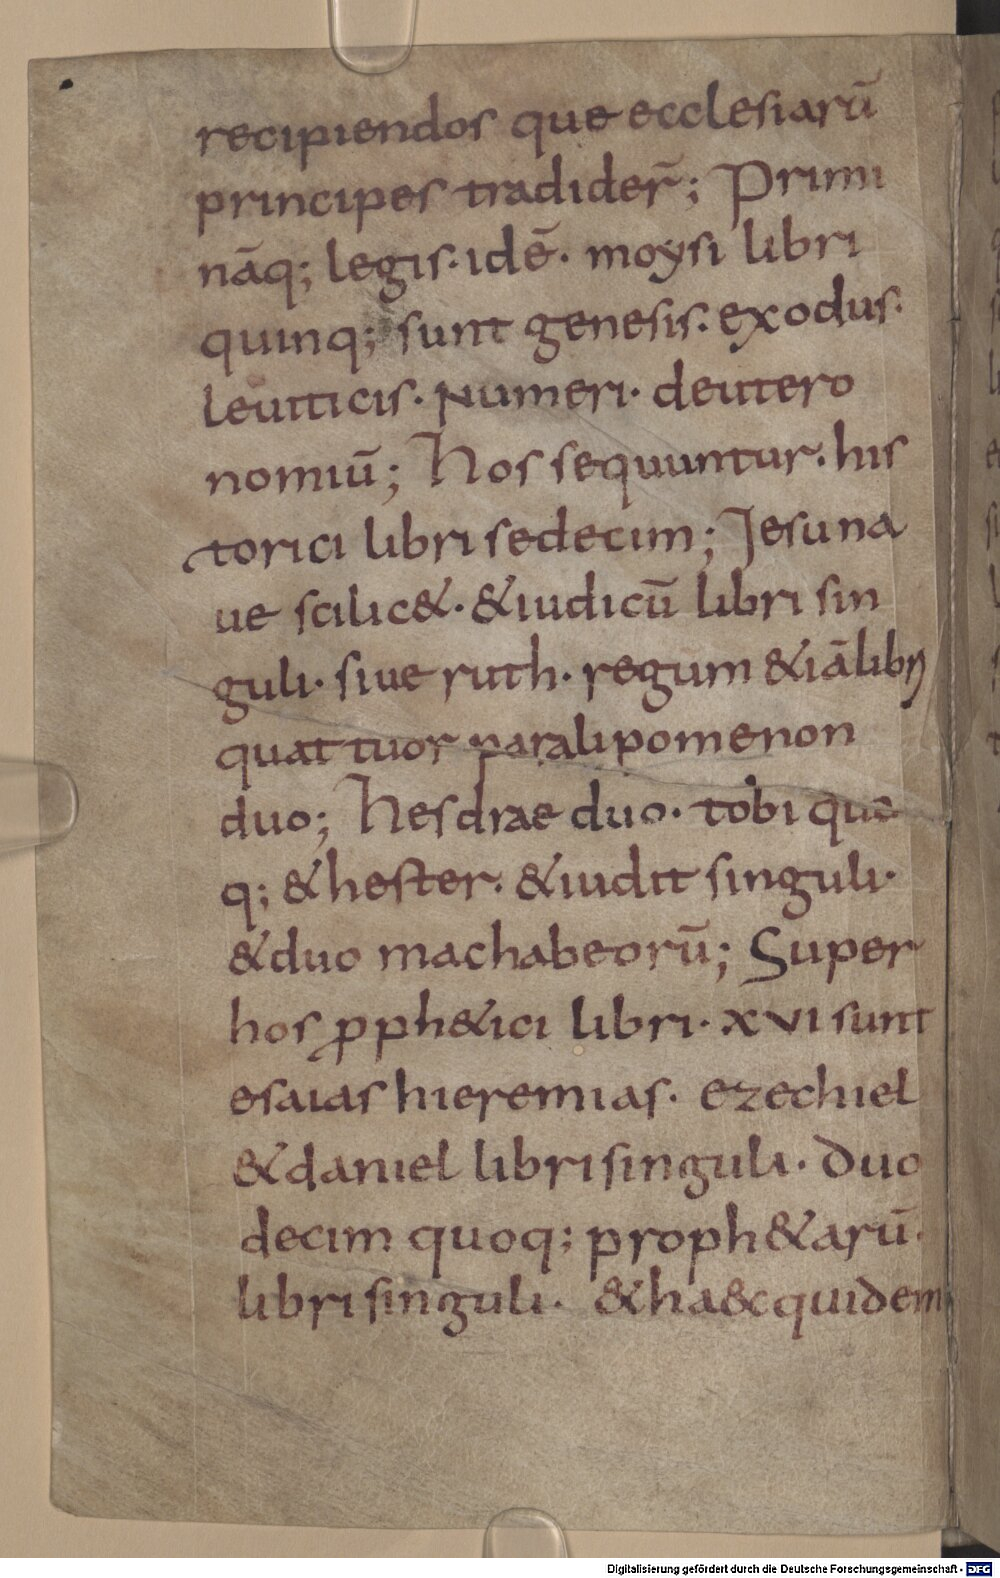 recipiendos que ecclesiarū
principes tradider̄; Primi
nāq; legis· idē· moysi libri
quinq; sunt genesis· exodus·
leuiticis· Numeri· deutero
nomiū; Hos sequuntur· his
torici libri sedecim; Jesu na
ue scilic&· &iudicū libri sin
guli· siue ruth· regūm &iā libri
quattuor paralipomenon
duo; Hesdrae duo· tobi quo
q; &hester· &iudit singuli·
&duo machabeorū; Super
hos ꝓph&ici libri· xvi sunt
esaias hieremias· ezechiel
&daniel libri singuli· duo
decim quoq; proph&arū·
libri singuli· &ha&c quidem
Digitalisierung gefördert durch die Deutsche Forschungsgemeinschaft - DFG